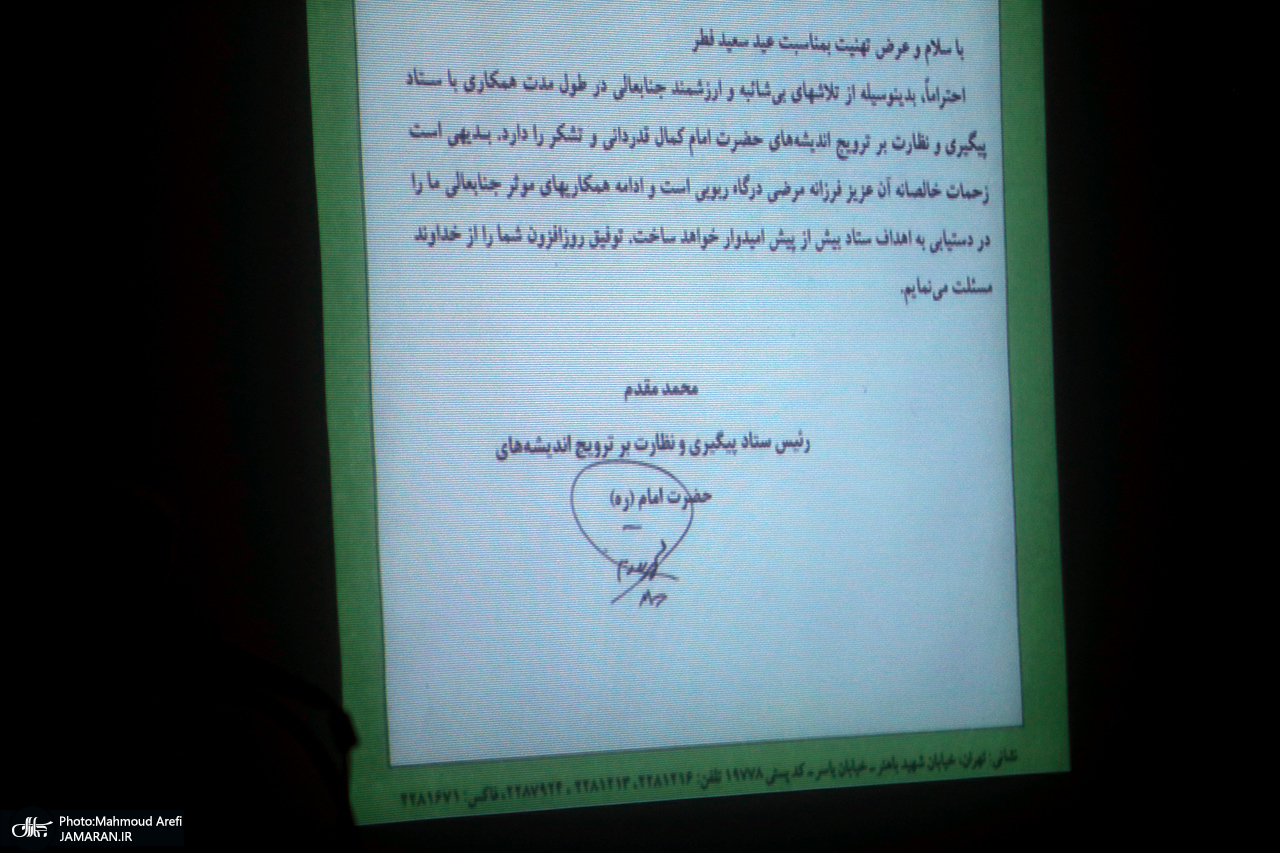 با سلام و عرض تهنیت بمناسبت عید سعید فطر
احتراماً، بدینوسیله از تلاشهای بی‌شائبه و ارزشمند جنابعالی در طول مدت همکاری با ستاد
پیگیری و نظارت بر ترویج اندیشه‌های حضرت امام کمال قدردانی و تشکر را دارد. بدیهی است
زحمات خالصانه آن عزیز فرزانه مرضی درگاه ربوبی است و ادامه همکاریهای موثر جنابعالی ما را
در دستیابی به اهداف ستاد بیش از پیش امیدوار خواهد ساخت. توفیق روزافزون شما را از خداوند
مسئلت می‌نمایم.
محمد مقدم
رئیس ستاد پیگیری و نظارت بر ترویج اندیشه‌های
حضرت امام (ره)
نشانی: تهران، خیابان شهید باهنر ـ خیابان یاسر ـ کد پستی ۱۹۷۷۸ تلفن: ۲۲۸۱۲۱۶، ۲۲۸۱۲۱۳ ، ۲۲۸۷۹۲۴، فاکس: ۲۲۸۱۶۷۱
Photo:Mahmoud Arefi
JAMARAN.IR